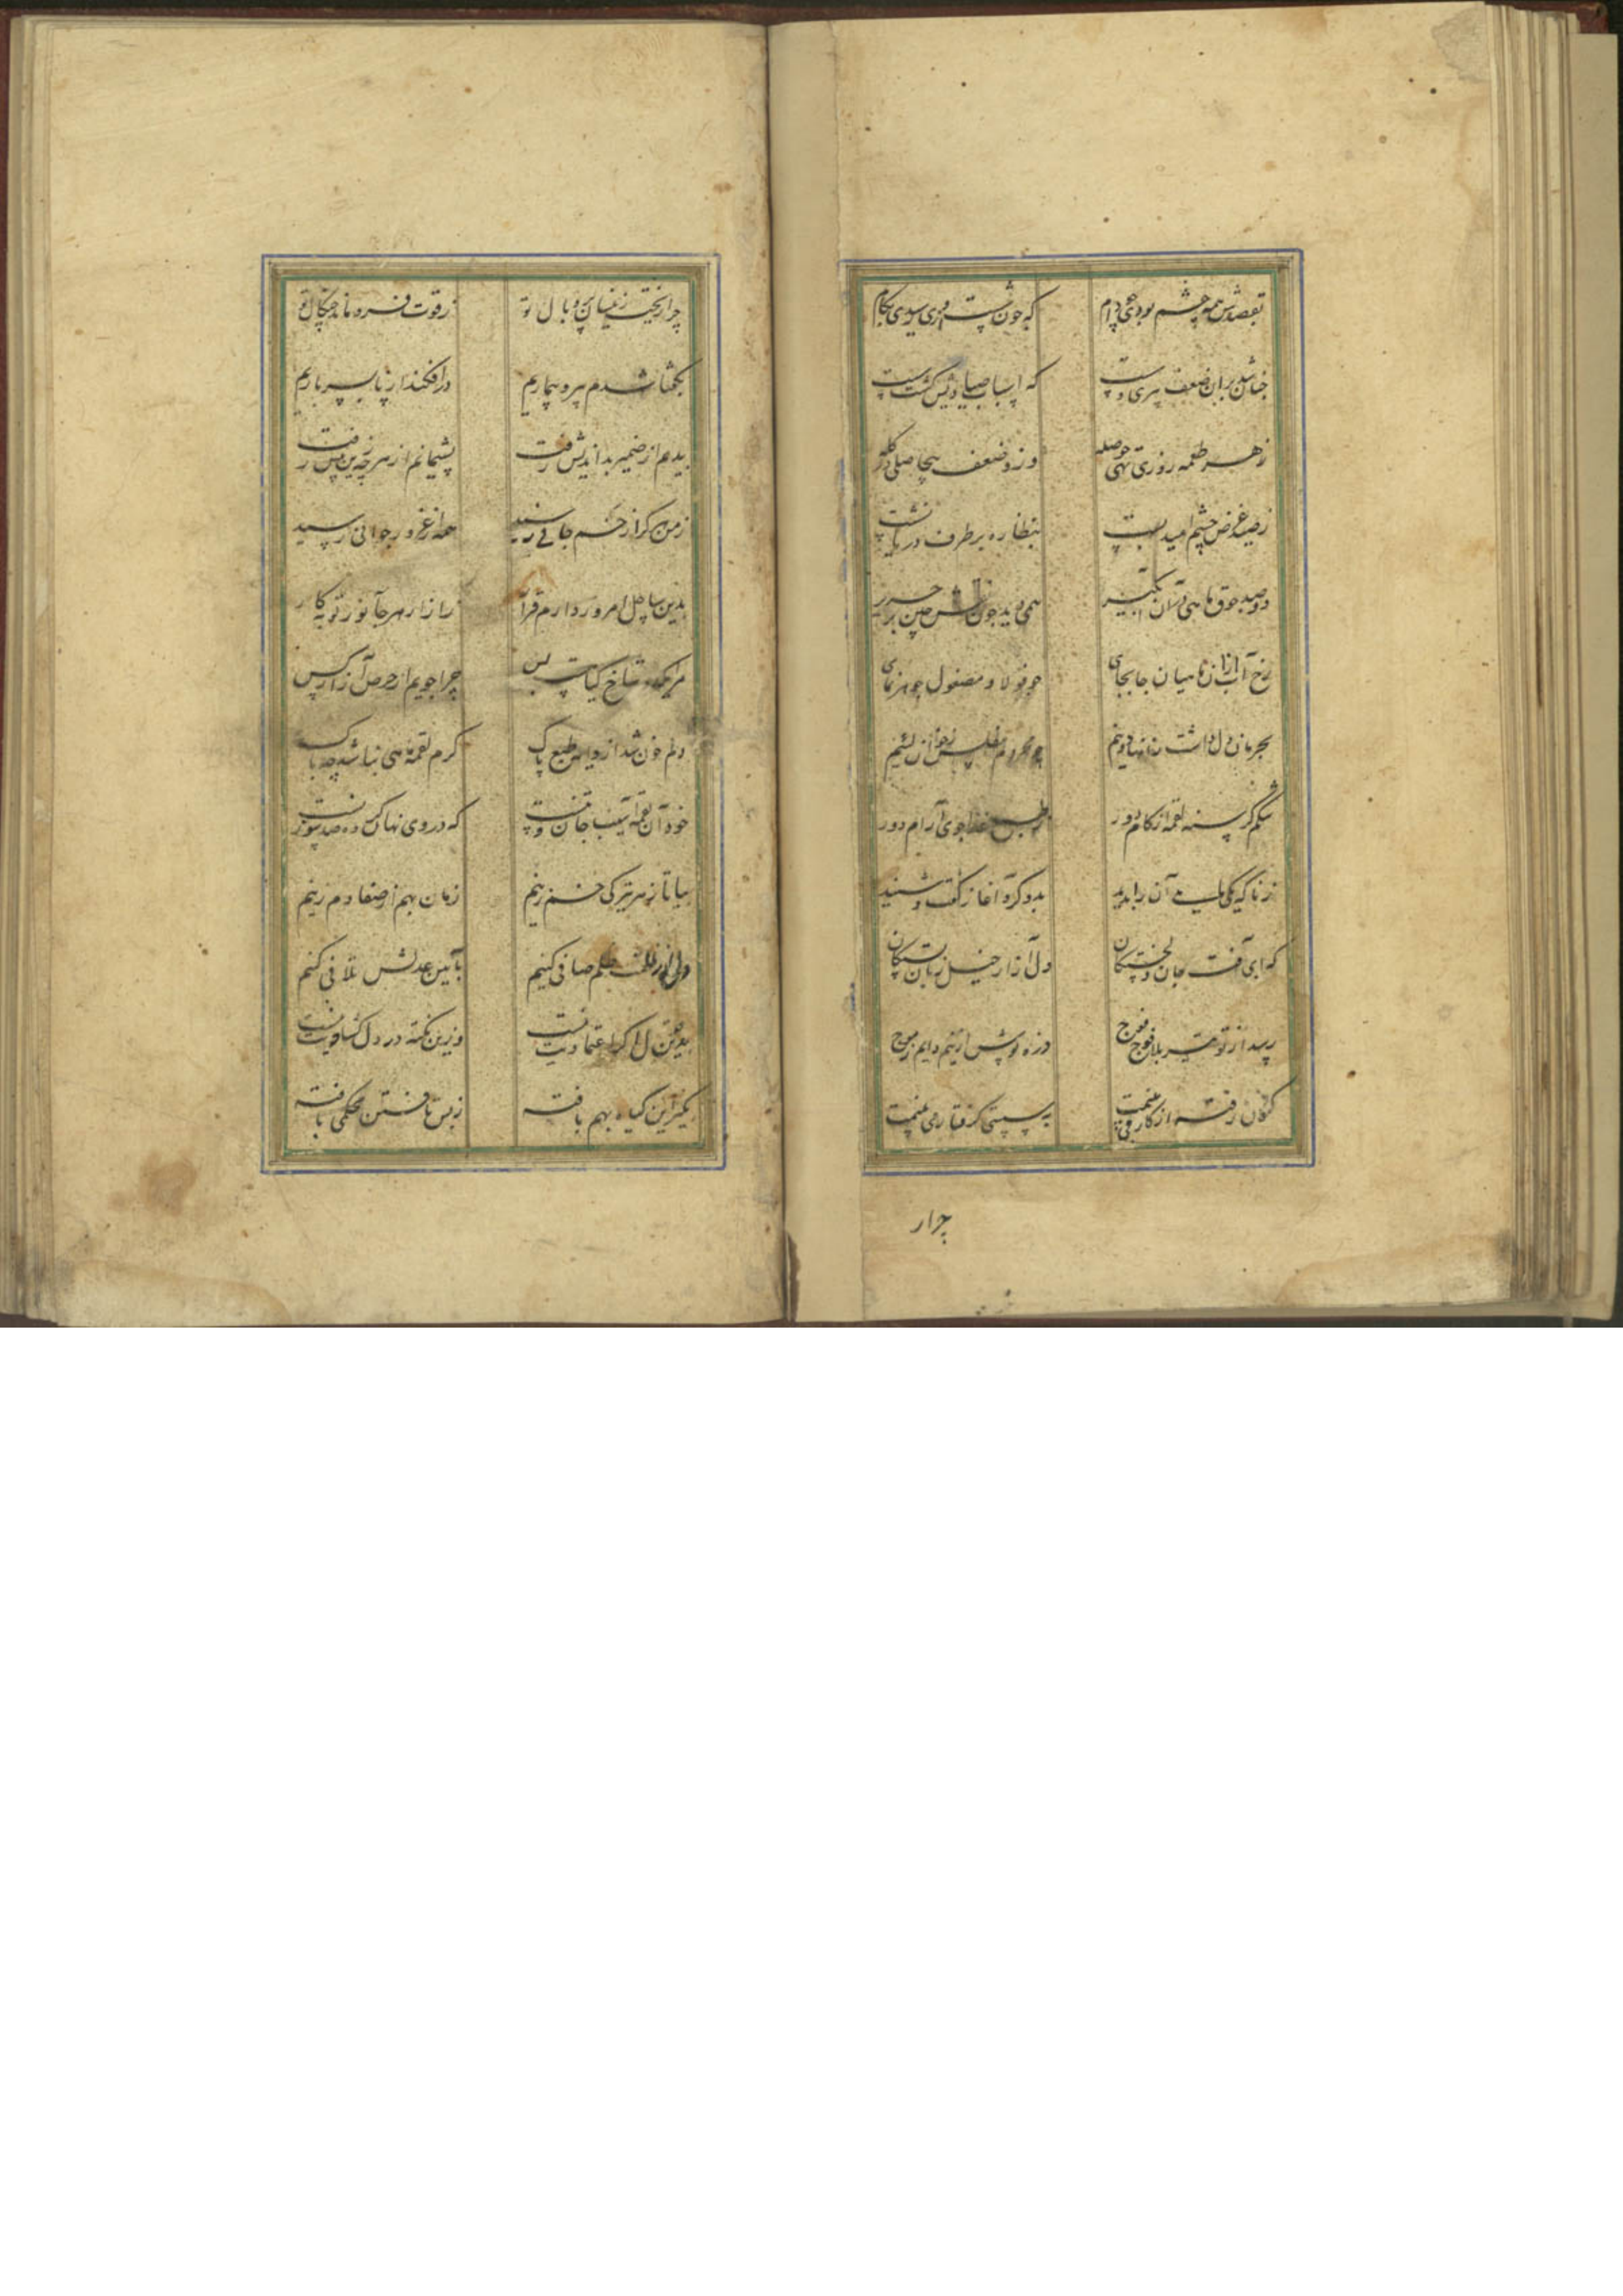 بقصدش همه چشم بودی چو دام که چون شست ازوی رسیدی بکام
چنان شد بران ضعف پیری و سست که اسباب صیادیش گشت سست
ز هر طعمه روزی تهی حوصله وز و ضعف بیحاصلی در گله
ز صید غرض چشم امید بست بنظاره بر طرف دریا نشست
دو صد جوق ماهی در آن آبگیر همی دید چون نقش چین بر حریر
رخ آب ازان ماهیان جابجای چو فولاد مصقول جوهر نمای
بحرمان دل داشت زانها دو نیم چو محروم مفلس ز خوان لئیم
شکم گرسنه لقمه از کام دور غذاجوی آرام دور
ز ناگه یکی ماهی آن را بدید بدو کرد آغاز گفت و شنید
که ای آفت جان دلخستگان دل آزار خیل زبان بستگان
رسد از تو تیر بلا فوج فوج زره پوش ازینیم دایم ز موج
کمان رفته از کار و بی به سستی گرفتار می بینمت
چرار
چرا ریخت زینسان پر و بال تو ز قوت فرو ماند چنگال تو
بگفتا شدم پیر و بیماریم در افکند از پا بسر باریم
بدیم از ضمیر بداندیش رفت پشیمانم از هر چه زین پیش رفت
ز من گر ازین جانی رسید همه از غرور جوانی رسید
بدین ساحل امروز دارم قرار ز آزار هر جانور توبه کار
مرا یکدو شاخ گیاهست بس چرا جویم از حرص آزار کس
دلم خون شد از وی طبع پاک گرم لقمه ماهی نباشد چه باک
خود آن لقمه آسیب جان و تنست که در وی نهان گشته صد سوزنست
بیا تا ز هر تیرگی خم زنیم زمان بهم از صفا دم زنیم
دل از ظلمت ظلم صافی کنیم بآیین عدلش تلافی کنیم
بدین قول اگر اعتمادیت نیست وزین نکته در دل گشادیت نیست
بگیر این گیاه بهم بافته ز بس تافتن محکمی یافته